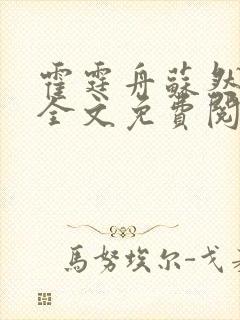 霍霆舟蘇然
全文免費閱
馬努埃尔-戈